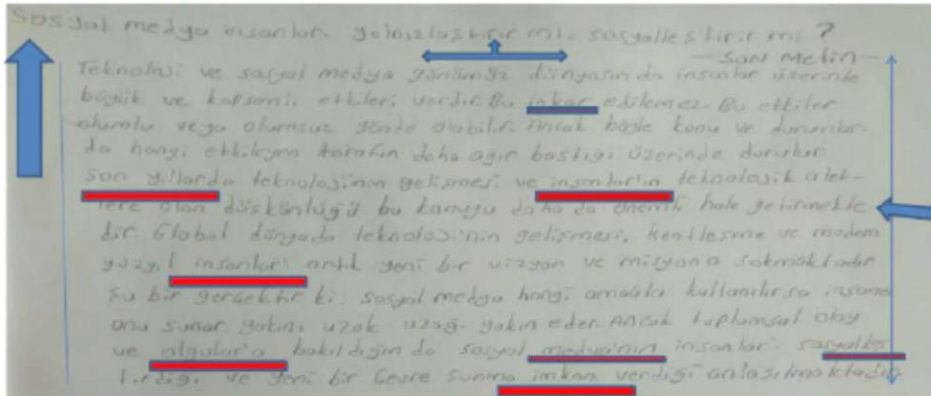 Sosyal medya insanları yalnızlaştırır mı. sosyalleştirir mi ?
— Son Metin —
Teknoloji ve sosyal medya günümüz dünyasın da insanlar üzerinde
büyük ve kapsamlı etkileri vardır. Bu inkar edilemez. Bu etkiler
olumlu veya olumsuz yönde olabilir. Ancak böyle konu ve durumlar-
da hangi etkileyen tarafın daha ağır bastığı üzerinde durulur.
son yıllarda teknolojinin gelişmesi ve insanlar'ın teknolojik alet-
lere olan düşkünlüğü bu konuyu daha da önemli hale getirmekte
dir Global dünyada teknoloji'nin gelişmesi, kentleşme ve modern
yüzyıl insanlar'ı artık yeni bir vizyon ve misyona sokmaktadır
Şu bir gerçektir ki; sosyal medya hangi amaçla kullanılırsa insana
onu sunar. yakını uzak uzağı yakın eder. Ancak toplumsal olay
ve olgular'a bakıldığın da sosyal medya'nın insanları sosyalleş
tirdiği ve yeni bir çevre sunma imkan verdiği anlaşılmaktadır